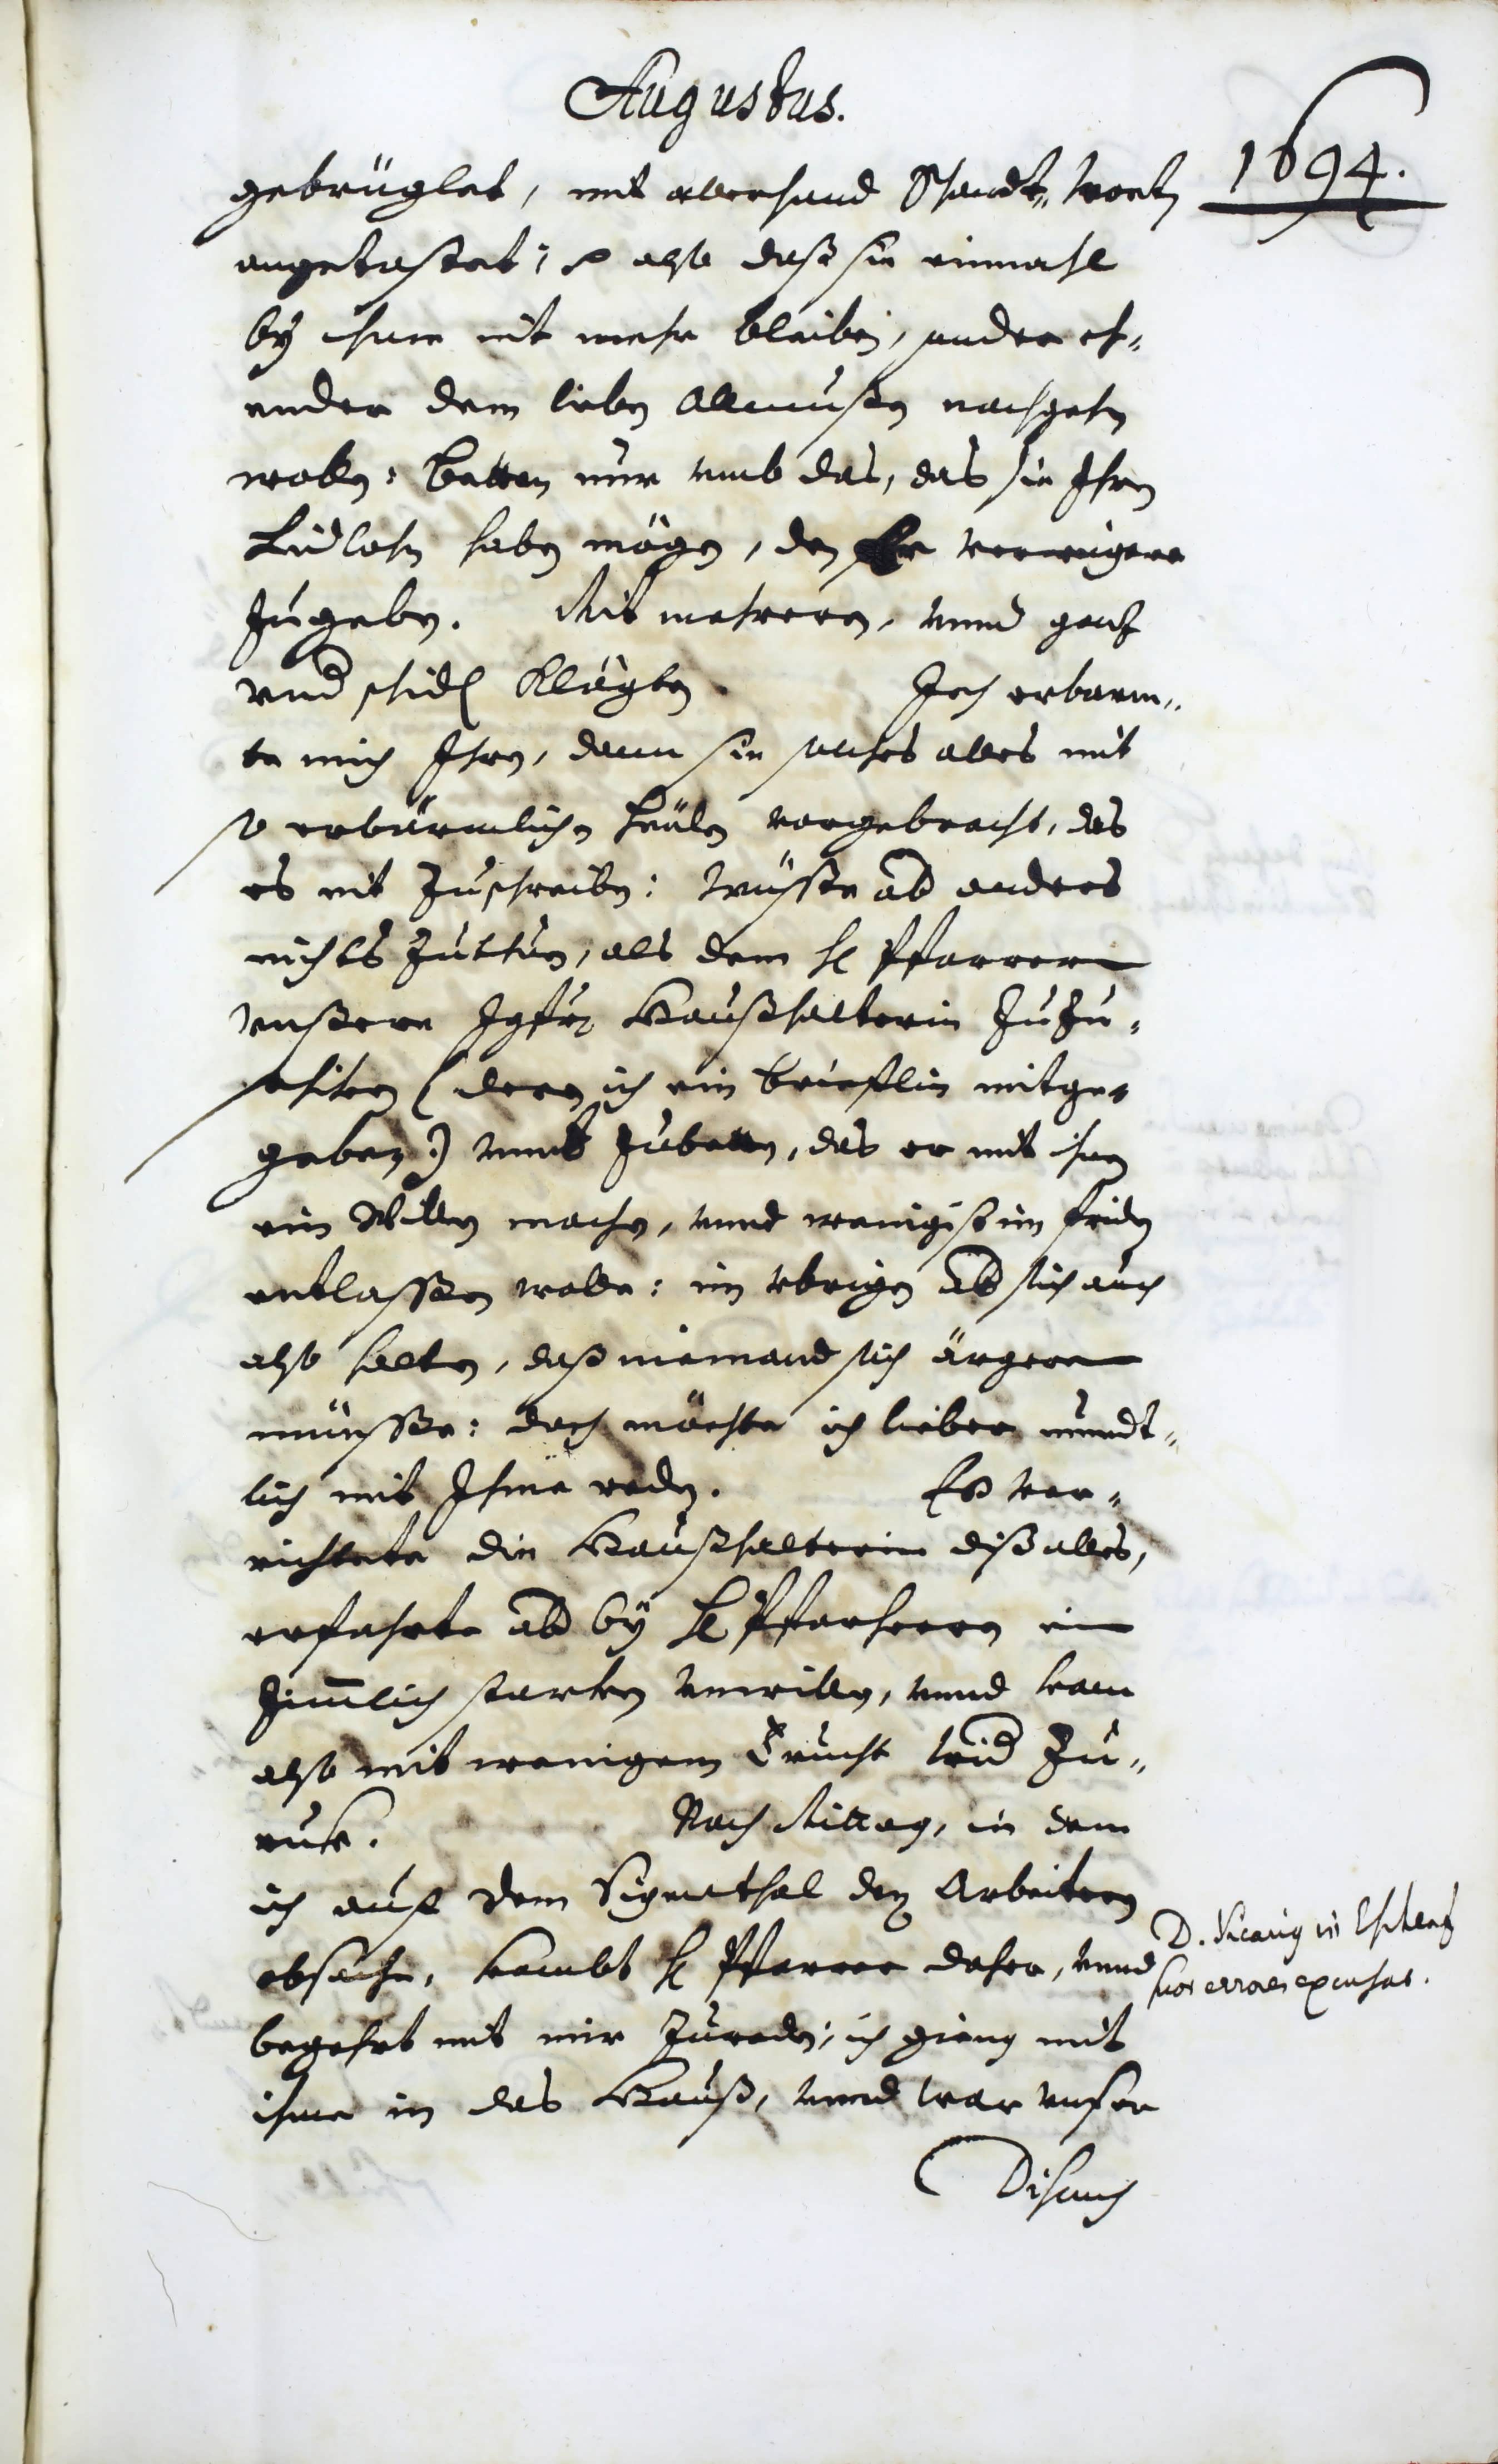 Augustus.
1694.
gebrüglet, mit allerhand Schandt„ wortẽ
angetastet; also daß sie einmahl
bÿ ihme nit mehr bleiben, sonder eh„
ender dem lieben Allmußen nachgehn
wollen: batten nur umb das, das sie Ihren
Lidlohn haben mögen, den Er verwigere
Zugeben. Mit mehreren, unnd ganz
underschidl Klägten. Ich erbarm„
te mich Ihren, dann sie solches alles mit
so erbärmlichen heülen vorgebracht, das
es nit Zuschreiben: wußte ab anders
nichts Zuthun, als dem H Pfarreren
unßere Jgfr Haußhalterin Zuzu„
schikhen (deren ich ein briefflin mitge„
geben:) unnd Zubetten, das er mit ihnen
ein Willen machen, unnd wenigist im friden
entlassen wolle: im übrigen ab sich auch
also halten, daß niemand sich ärgeren
müesse: doch möchte ich lieber mundt„
lich mit Ihme reden. Es ver„
richtete die Haußhalterin diß alles,
erfahrte ab bÿ H Pfarherren ein
Zimlich starken unwillen, unnd kam
also mit wenigem frucht wid Zu„
rukh. Nach Mittag, in dem
ich auf dem Sigenthal den Arbeiteren
obsache, kombt H Pfarrer daher, unnd
begehrt mit mir Zureden; ich gieng mit
ihme in das Hauß, unnd war unser
Discurs
D. Vicarius in Eschenz
suos errores excusat.